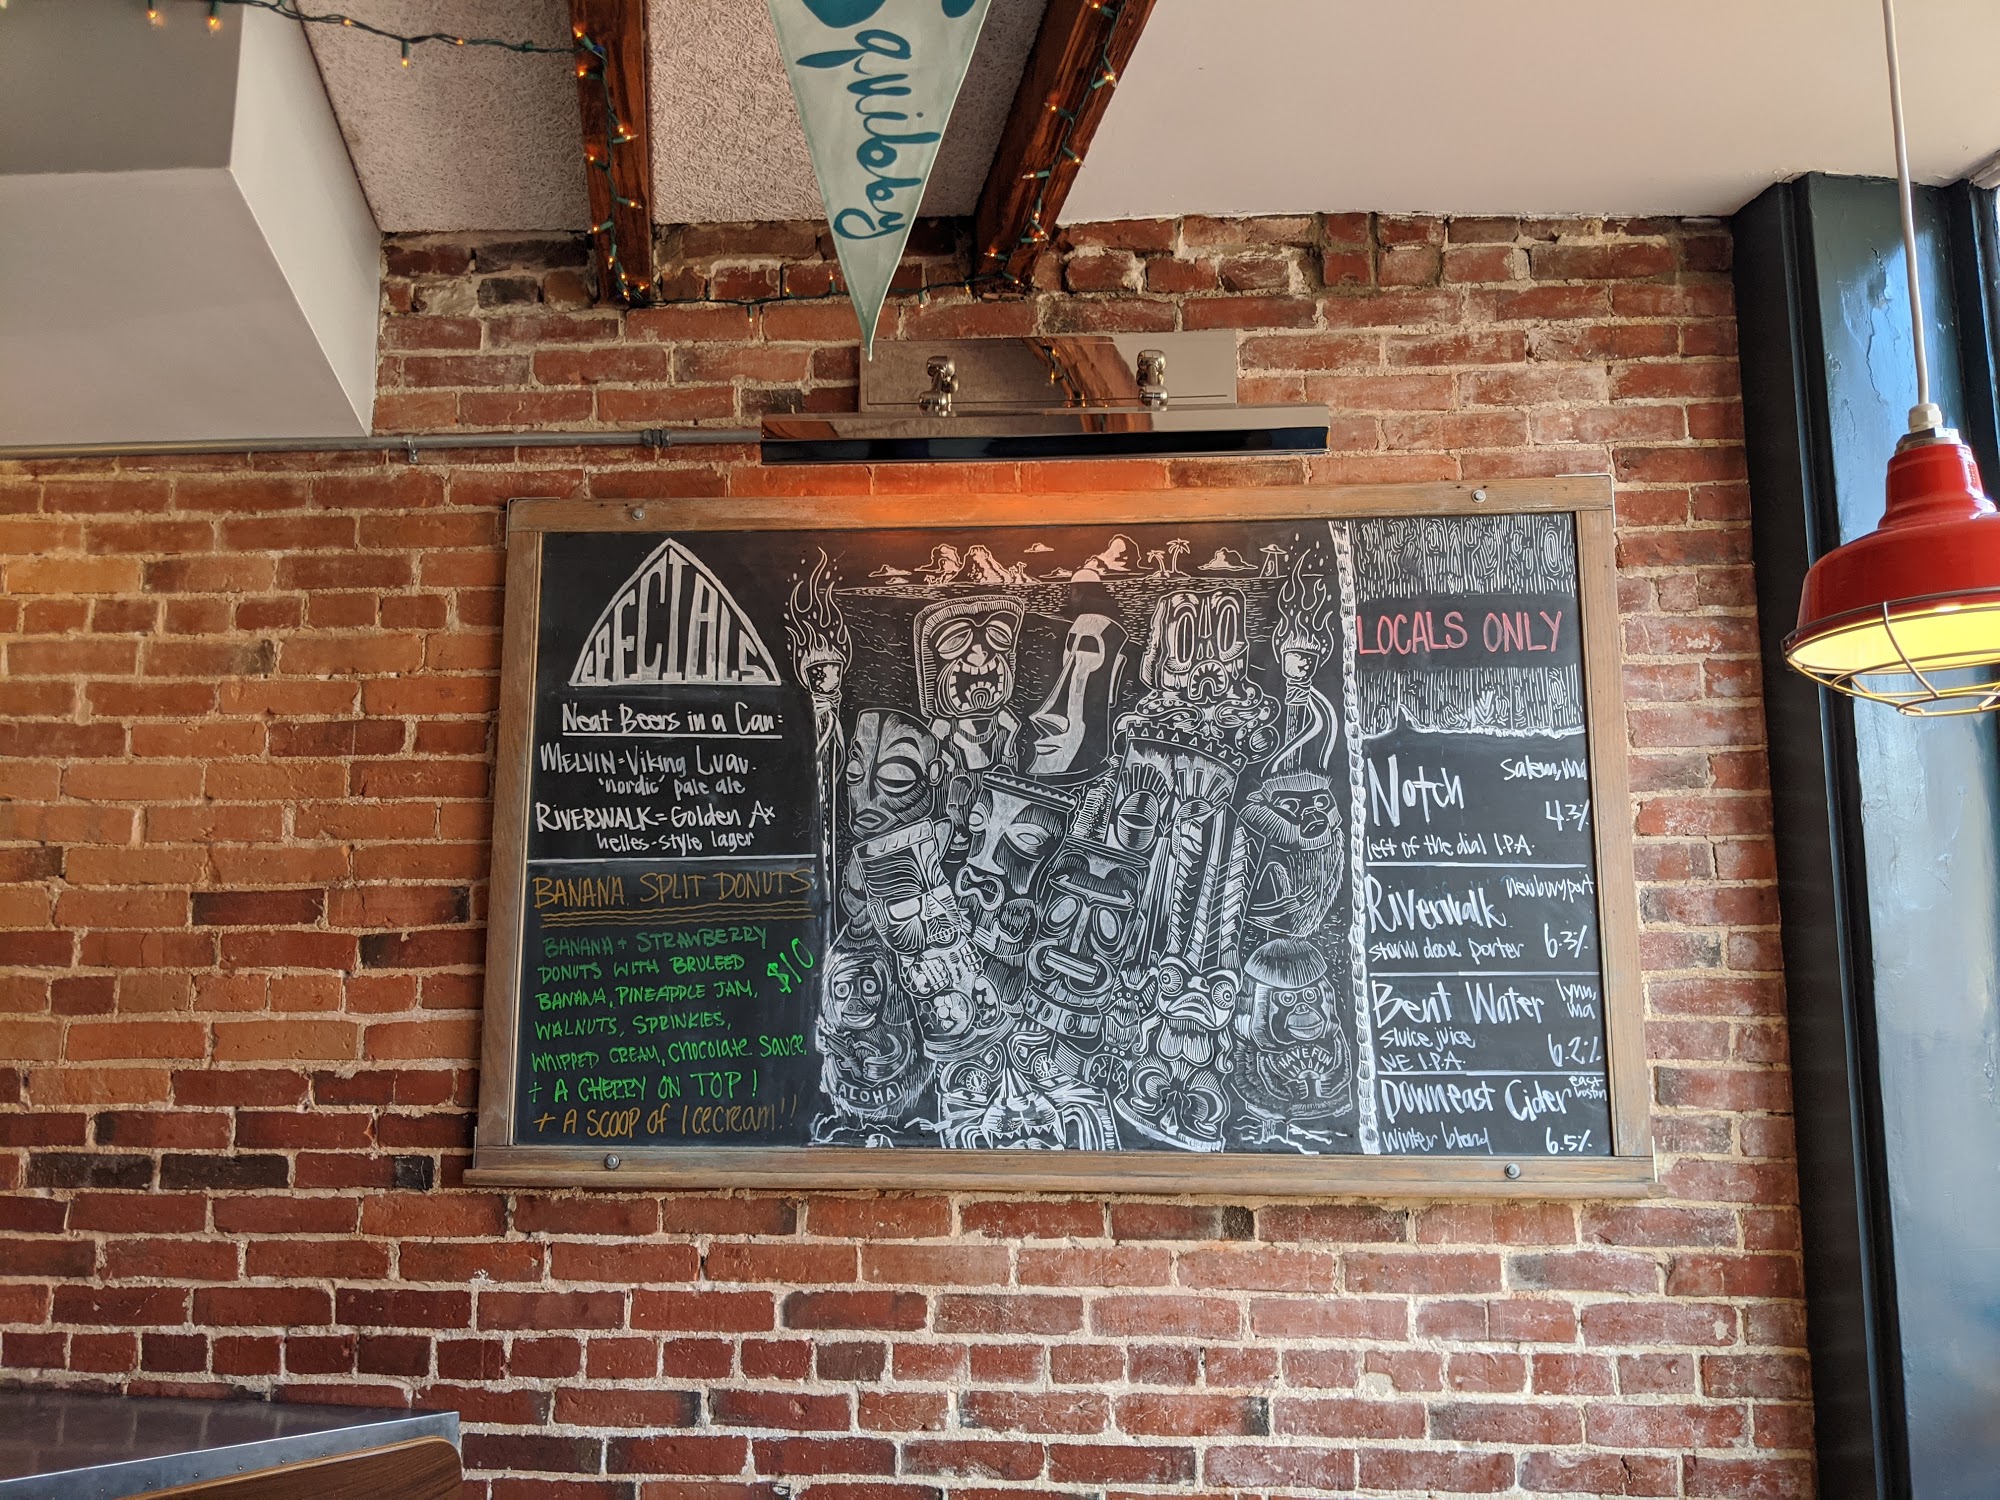 Squilby
SPECIALS
Neat Beers in a Can:
MELVIN=Viking Luau.
'nordic' pale ale
RIVERWALK=Golden Ax
helles-style lager
BANANA SPLIT DONUTS
BANANA + STRAWBERRY
DONUTS WITH BRULEED
BANANA, PINEAPPLE JAM,
WALNUTS, SPRINKLES,
WHIPPED CREAM, CHOCOLATE SAUCE,
+ A CHERRY ON TOP!
+ A SCOOP OF ICECREAM!!
$10
ALOHA
HAVE FUN
LOCALS ONLY
Notch
Salem, Ma
4.3%
left of the dial I.P.A.
Riverwalk
newburyport
storm door porter
6.3%
Bent Water
lynn,
ma
sluice juice
NE I.P.A.
6.2%
Downeast Cider
east
boston
winter blend
6.5%